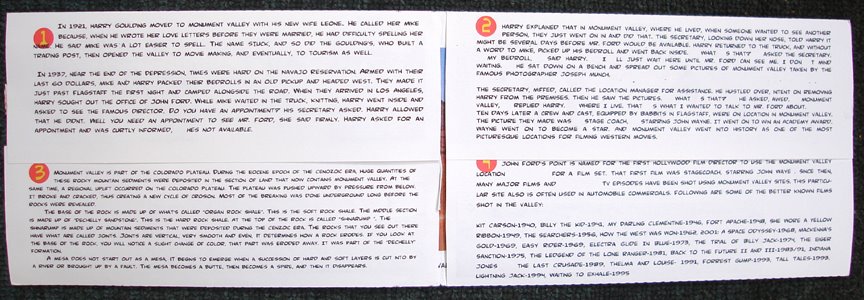 1
In 1921, Harry Goulding moved to Monument Valley with his new wife Leone. He called her Mike
because, when he wrote her love letters before they were married, he had difficulty spelling her
name. He said Mike was a lot easier to spell. The name stuck, and so did the Goulding's, who built a
trading post, then opened the valley to movie making, and eventually, to tourism as well.
In 1937, near the end of the Depression, times were hard on the Navajo Reservation. Armed with their
last 60 dollars, Mike and Harry packed their bedrolls in an old pickup and headed west. They made it
just past Flagstaff the first night and camped alongside the road. When they arrived in Los Angeles,
Harry sought out the office of John Ford. While Mike waited in the truck, knitting, Harry went inside and
asked to see the famous director. Do you have an appointment? His secretary asked. Harry allowed
that he didn't. Well you need an appointment to see Mr. Ford, she said firmly. Harry asked for an
appointment and was curtly informed, he's not available.
2
Harry explained that in Monument Valley, where he lived, when someone wanted to see another
person, they just went on in and did that. The secretary, looking down her nose, told Harry it
might be several days before Mr. Ford would be available. Harry returned to the truck, and without
a word to Mike, picked up his bedroll and went back inside. What s that? asked the secretary.
My bedroll, said Harry. I ll just wait here until Mr. Ford can see me. I don t mind
waiting. He sat down on a bench and spread out some pictures of Monument Valley taken by the
famous photographer Joseph Muench.
The secretary, miffed, called the location manager for assistance. He hustled over, intent on removing
Harry from the premises. Then he saw the pictures. What s that? He asked, awed. Monument
Valley, replied Harry. Where I live. That s what I wanted to talk to Mr. Ford about.
Ten days later a crew and cast, equipped by Babbitts in Flagstaff, were on location in Monument Valley.
The picture they made was Stage Coach, starring John Wayne. It went on to win an Academy Award.
Wayne went on to become a star. And Monument Valley went into history as one of the most
picturesque locations for filming Western movies.
3
Monument Valley is part of the Colorado Plateau. During the Eocene Epoch of the Cenozoic Era, huge quantities of
these rocky mountain sediments were deposited in the section of land that now contains Monument Valley. At the
same time, a regional uplift occurred on the Colorado Plateau. The plateau was pushed upward by pressure from below.
It broke and cracked, thus creating a new cycle of erosion. Most of the breaking was done underground long before the
rocks were revealed.
The base of the rock is made up of what's called "Organ Rock Shale". This is the soft rock shale. The middle section
is made up of "Dechelly Sandstone". This is the hard rock shale. At the top of the rock is called "Shinarump". The
Shinarump is made up of mountain sediments that were deposited during the Cenozic Era. The rocks that you see out there
have what are called joints. Joints are vertical, very smooth and even. It determines how a rock erodes. If you look at
the base of the rock, you will notice a slight change of color, that part was eroded away. It was part of the "Dechelly"
formation.
A mesa does not start out as a mesa, it begins to emerge when a succession of hard and soft layers is cut into by
a river or brought up by a fault. The mesa becomes a butte, then becomes a spire, and then it disappears.
4
John Ford's Point is named for the first Hollywood film director to use the Monument Valley
location for a film set. That first film was Stagecoach, starring John Wayne. Since then,
many major films and TV episodes have been shot using Monument Valley sites. This particu-
lar site also is often used in automobile commercials. Following are some of the better known films
shot in the valley:
Kit Carson-1940, Billy the Kid-1941, My Darling Clementine-1946, Fort Apache-1948, She Wore a Yellow
Ribbon-1949, The Searchers-1956, How the West Was Won-1962, 2001: A Space Odyssey-1968, Mackenna's
Gold-1969, Easy Rider-1969, Electra Glide in Blue-1973, The Trial of Billy Jack-1974, The Eiger
Sanction-1975, The Ledgend of the Lone Ranger-1981, Back to the Future II and III-1983/91, Indiana
Jones The Last Crusade-1989, Thelma and Louise- 1991, Forrest Gump-1993, Tall Tales-1993,
Lightning Jack-1994, Waiting to Exhale-1995